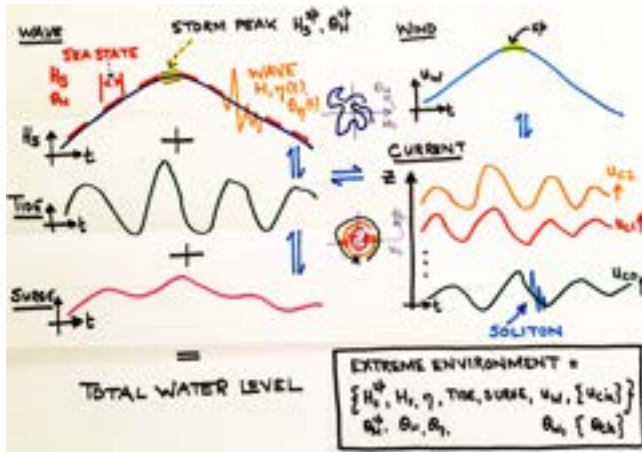 WAVE
STORM PEAK H_S^sp, θ_H^sp
SEA STATE
H_S
θ_H
WAVE
H, η(t),
θ_η(t)
H_S
t
+
TIDE
t
+
SURGE
t
=
TOTAL WATER LEVEL
WIND
sp
u_W
t
CURRENT
Z
u_C2
u_C1
u_C0
t
SOLITON
EXTREME ENVIRONMENT =
{H_S^sp, H_S, η, TIDE, SURGE, u_W, {u_Ck}}
θ_H^sp, θ_H, θ_η, θ_W, {θ_Ck}